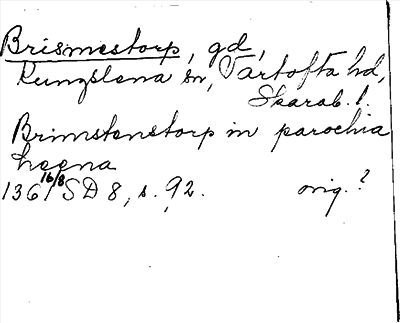 Brismestorp, gd,
Kungslena sn, Vartofta hd,
Skarab. l.
Brimstenstorp in parochia
Leena
1361 16/8 SD 8, s. 92. orig.?